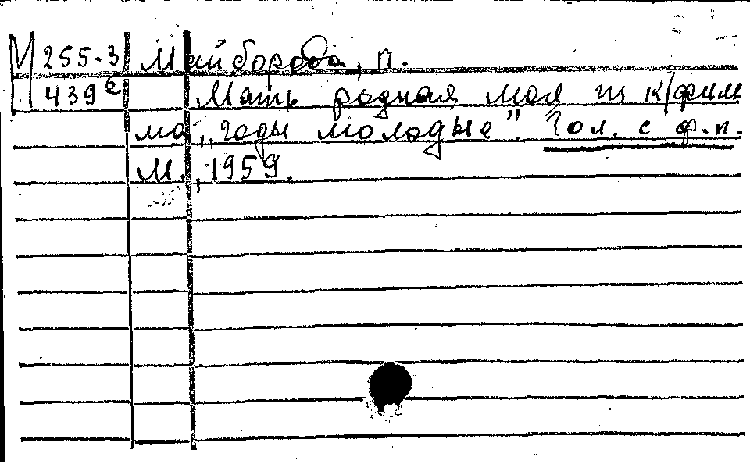 М 255-3 Майборода, П.
439е Мать родная моя из к/филь
ма „Годы молодые". Гол. с ф.п.
М., 1959.